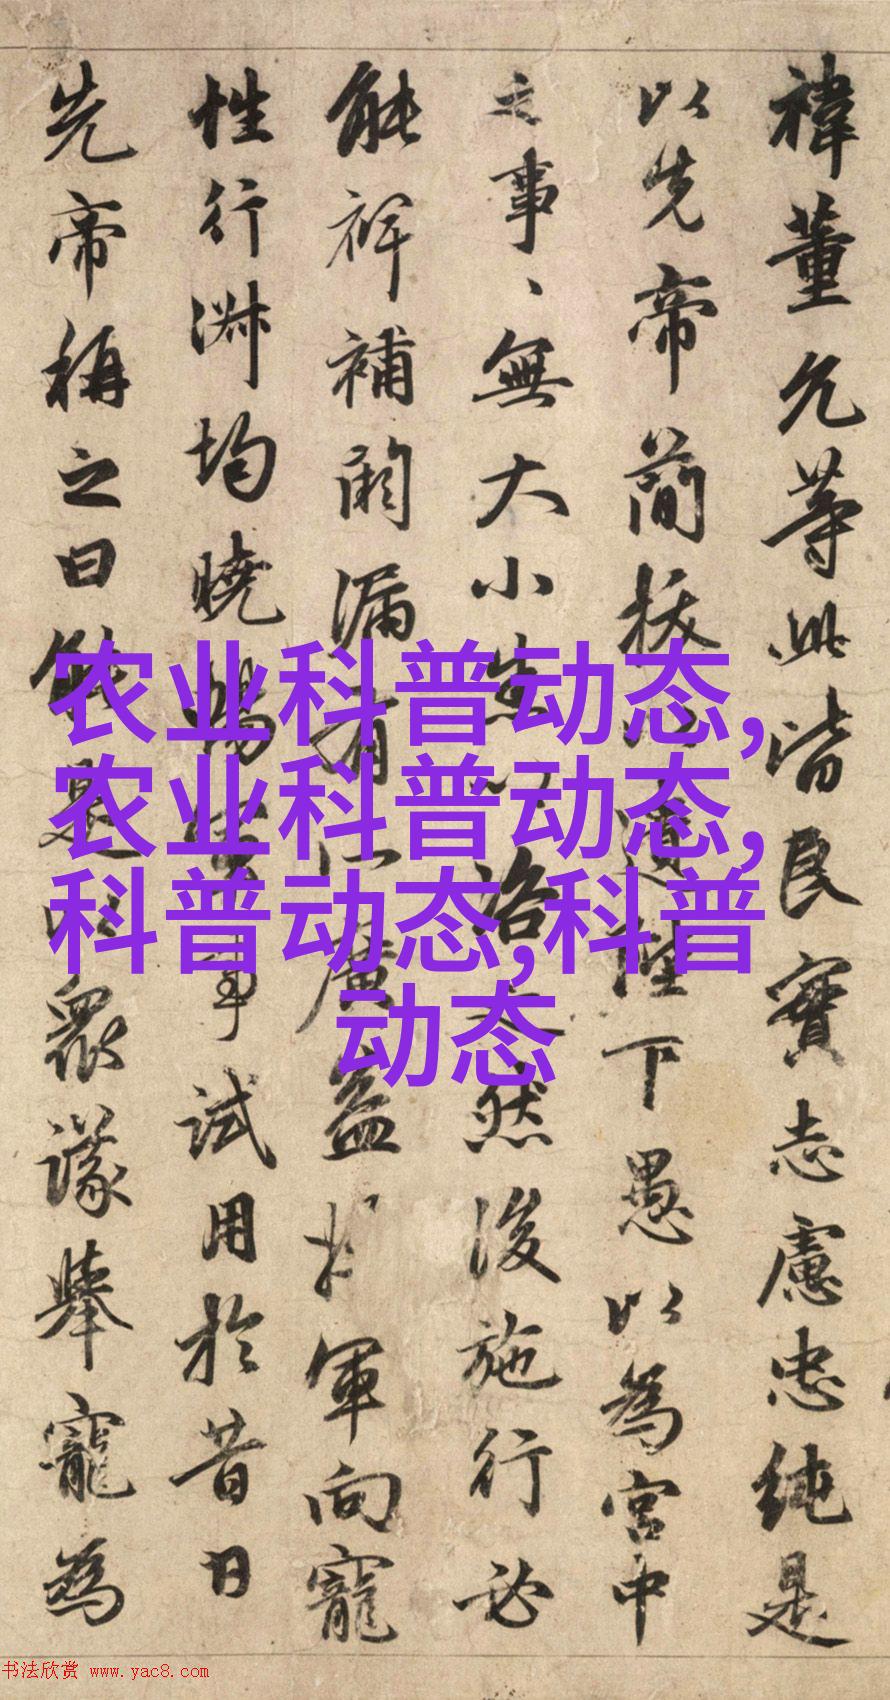 禕董允等此皆良實志慮忠純是
以先帝簡拔以遺陛下愚以為宮中
之事、無大小悉以諮之然後施行必
能裨補闕漏有所廣益將軍向寵
性行淑均曉暢軍事試用於昔日
先帝稱之曰能是以衆議舉寵為
农业科普动态,
农业科普动态,
科普动态,科普
动态
书法欣赏 www.yac8.com